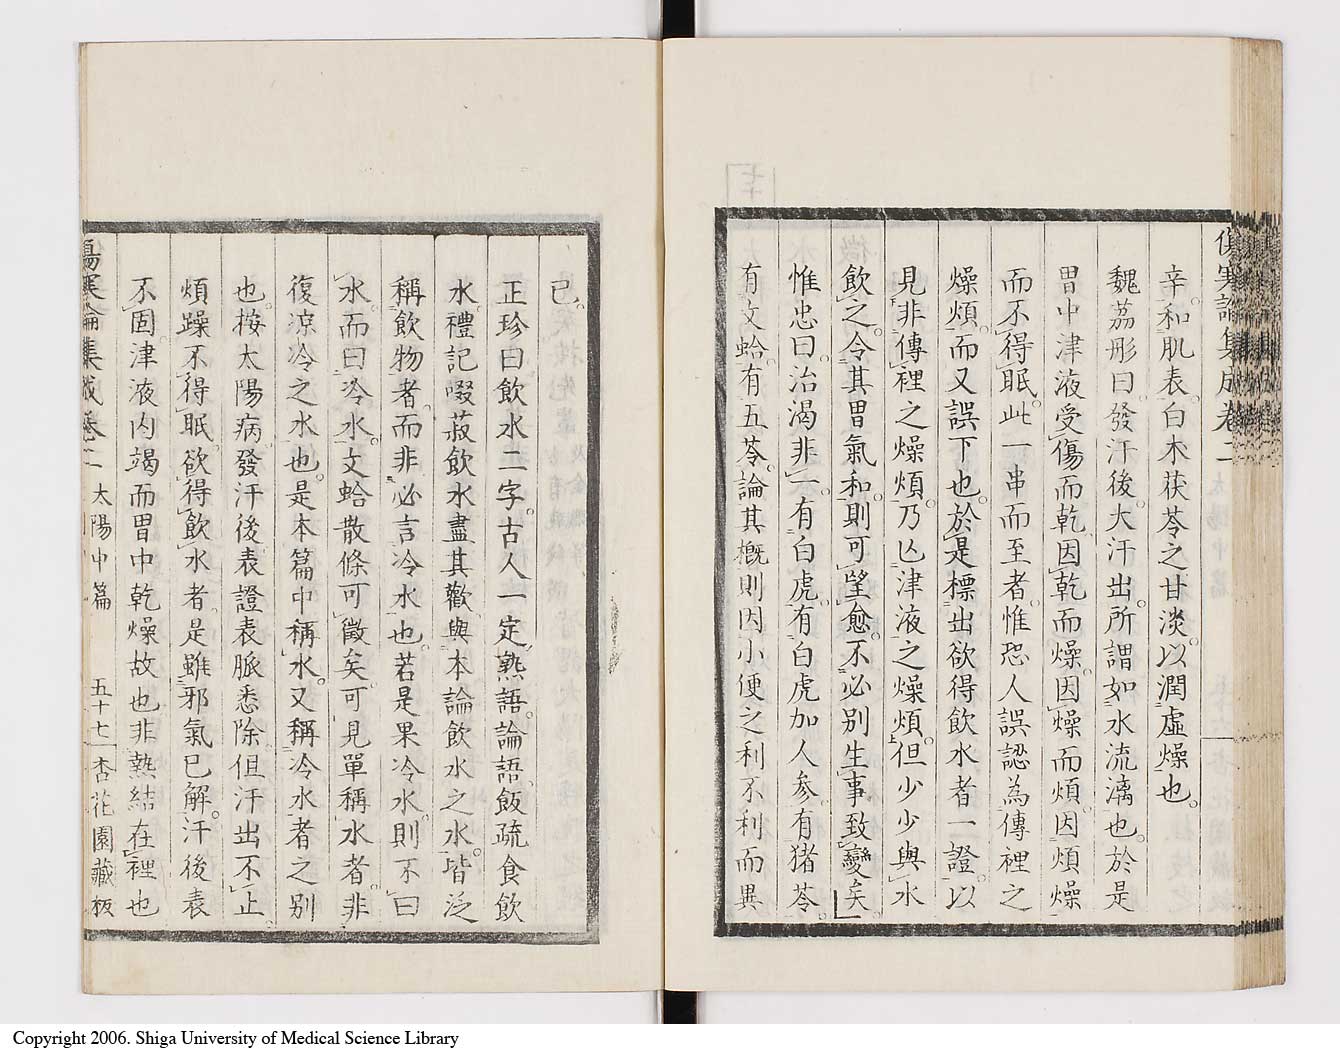 傷寒論集成卷二
辛。和肌表。白朮茯苓之甘淡。以潤虛燥也。
魏荔彤曰。發汗後。大汗出。所謂如水流漓也。於是
胃中津液受傷而乾。因乾而燥。因燥而煩。因煩燥
而不得眠。此一串而至者。惟恐人誤認為傳裡之
燥煩。而又誤下也。於是標出欲得飲水者一證。以
見非傳裡之燥煩。乃亡津液之燥煩。但少少與水
飲之。令其胃氣和。則可望愈。不必別生事致變矣
惟忠曰。治渴非一。有白虎。有白虎加人參。有猪苓。
有文蛤。有五苓。論其概則因小便之利不利而異
已。
正珍曰。飲水二字。古人一定熟語。論語。飯疏食飲
水。禮記啜菽飲水盡其歡。與本論飲水之水。皆泛
稱飲物者。而非必言冷水也。若是果冷水。則不曰
水。而曰冷水。文蛤散條可徵矣。可見單稱水者。非
復凉冷之水也。是本篇中稱水。又稱冷水者之別
也。按太陽病。發汗後。表證表脈悉除。但汗出不止
煩躁不得眠。欲得飲水者。是雖邪氣已解。汗後表
不固。津液内竭而胃中乾燥故也。非熱結在裡也
傷寒論集成卷二 太陽中篇 五十七 杏花園藏板
Copyright 2006. Shiga University of Medical Science Library